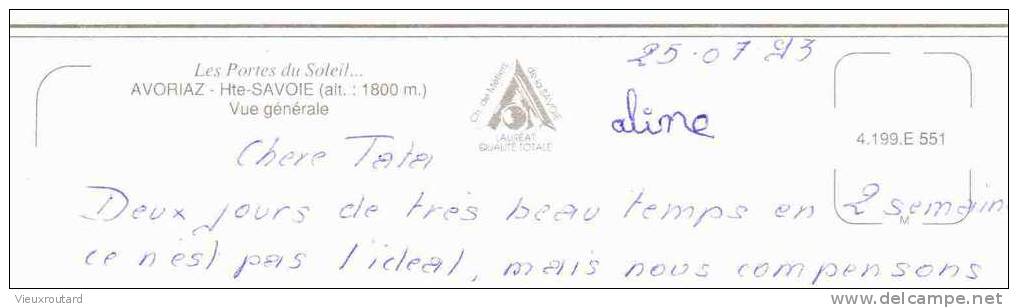 25.07 93
Les Portes du Soleil...
AVORIAZ - Hte-SAVOIE (alt. : 1800 m.)
Vue générale
Ch. de Métiers de la SAVOIE
LAURÉAT
QUALITÉ TOTALE
aline
4.199.E 551
Chere Tata
Deux jours de très beau temps en 2 semain
M
ce n'est pas l'ideal, mais nous compensons
Vieuxroutard
delcampe.net